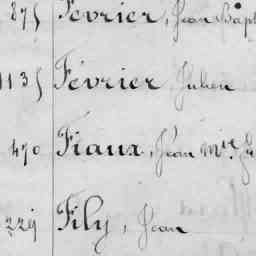 875 Fevrier, Jean Bap
1135 Février Julien
470 Fiaux, Jean Mie
229 Fily, Jean